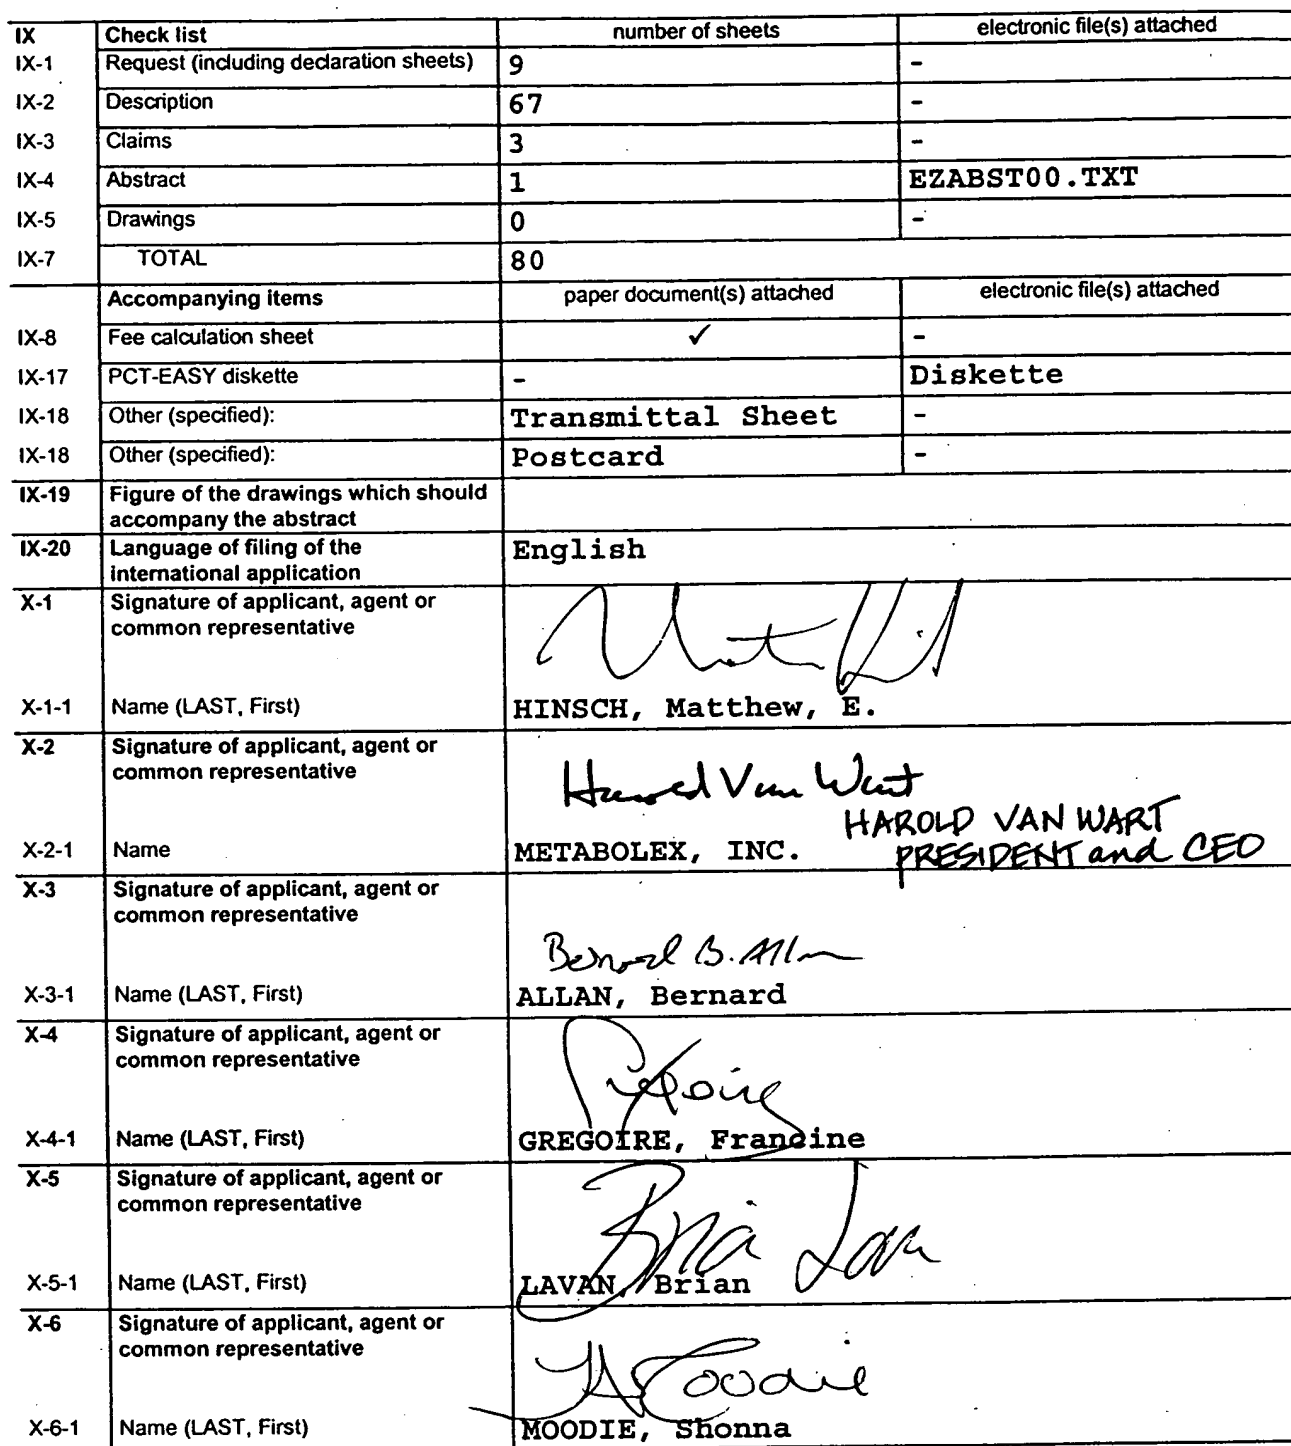 IX Check list number of sheets electronic file(s) attached
IX-1 Request (including declaration sheets) 9 -
IX-2 Description 67 -
IX-3 Claims 3 -
IX-4 Abstract 1 EZABST00.TXT
IX-5 Drawings 0 -
IX-7 TOTAL 80
Accompanying items paper document(s) attached electronic file(s) attached
IX-8 Fee calculation sheet ✓ -
IX-17 PCT-EASY diskette - Diskette
IX-18 Other (specified): Transmittal Sheet -
IX-18 Other (specified): Postcard -
IX-19 Figure of the drawings which should
accompany the abstract
IX-20 Language of filing of the English
international application
X-1 Signature of applicant, agent or
common representative
X-1-1 Name (LAST, First) HINSCH, Matthew, E.
X-2 Signature of applicant, agent or
common representative
Harold Van Wart
HAROLD VAN WART
X-2-1 Name METABOLEX, INC. PRESIDENT and CEO
X-3 Signature of applicant, agent or
common representative
Bernard B. Allan
X-3-1 Name (LAST, First) ALLAN, Bernard
X-4 Signature of applicant, agent or
common representative
X-4-1 Name (LAST, First) GREGOIRE, Francine
X-5 Signature of applicant, agent or
common representative
Brian Lavan
X-5-1 Name (LAST, First) LAVAN, Brian
X-6 Signature of applicant, agent or
common representative
X-6-1 Name (LAST, First) MOODIE, Shonna